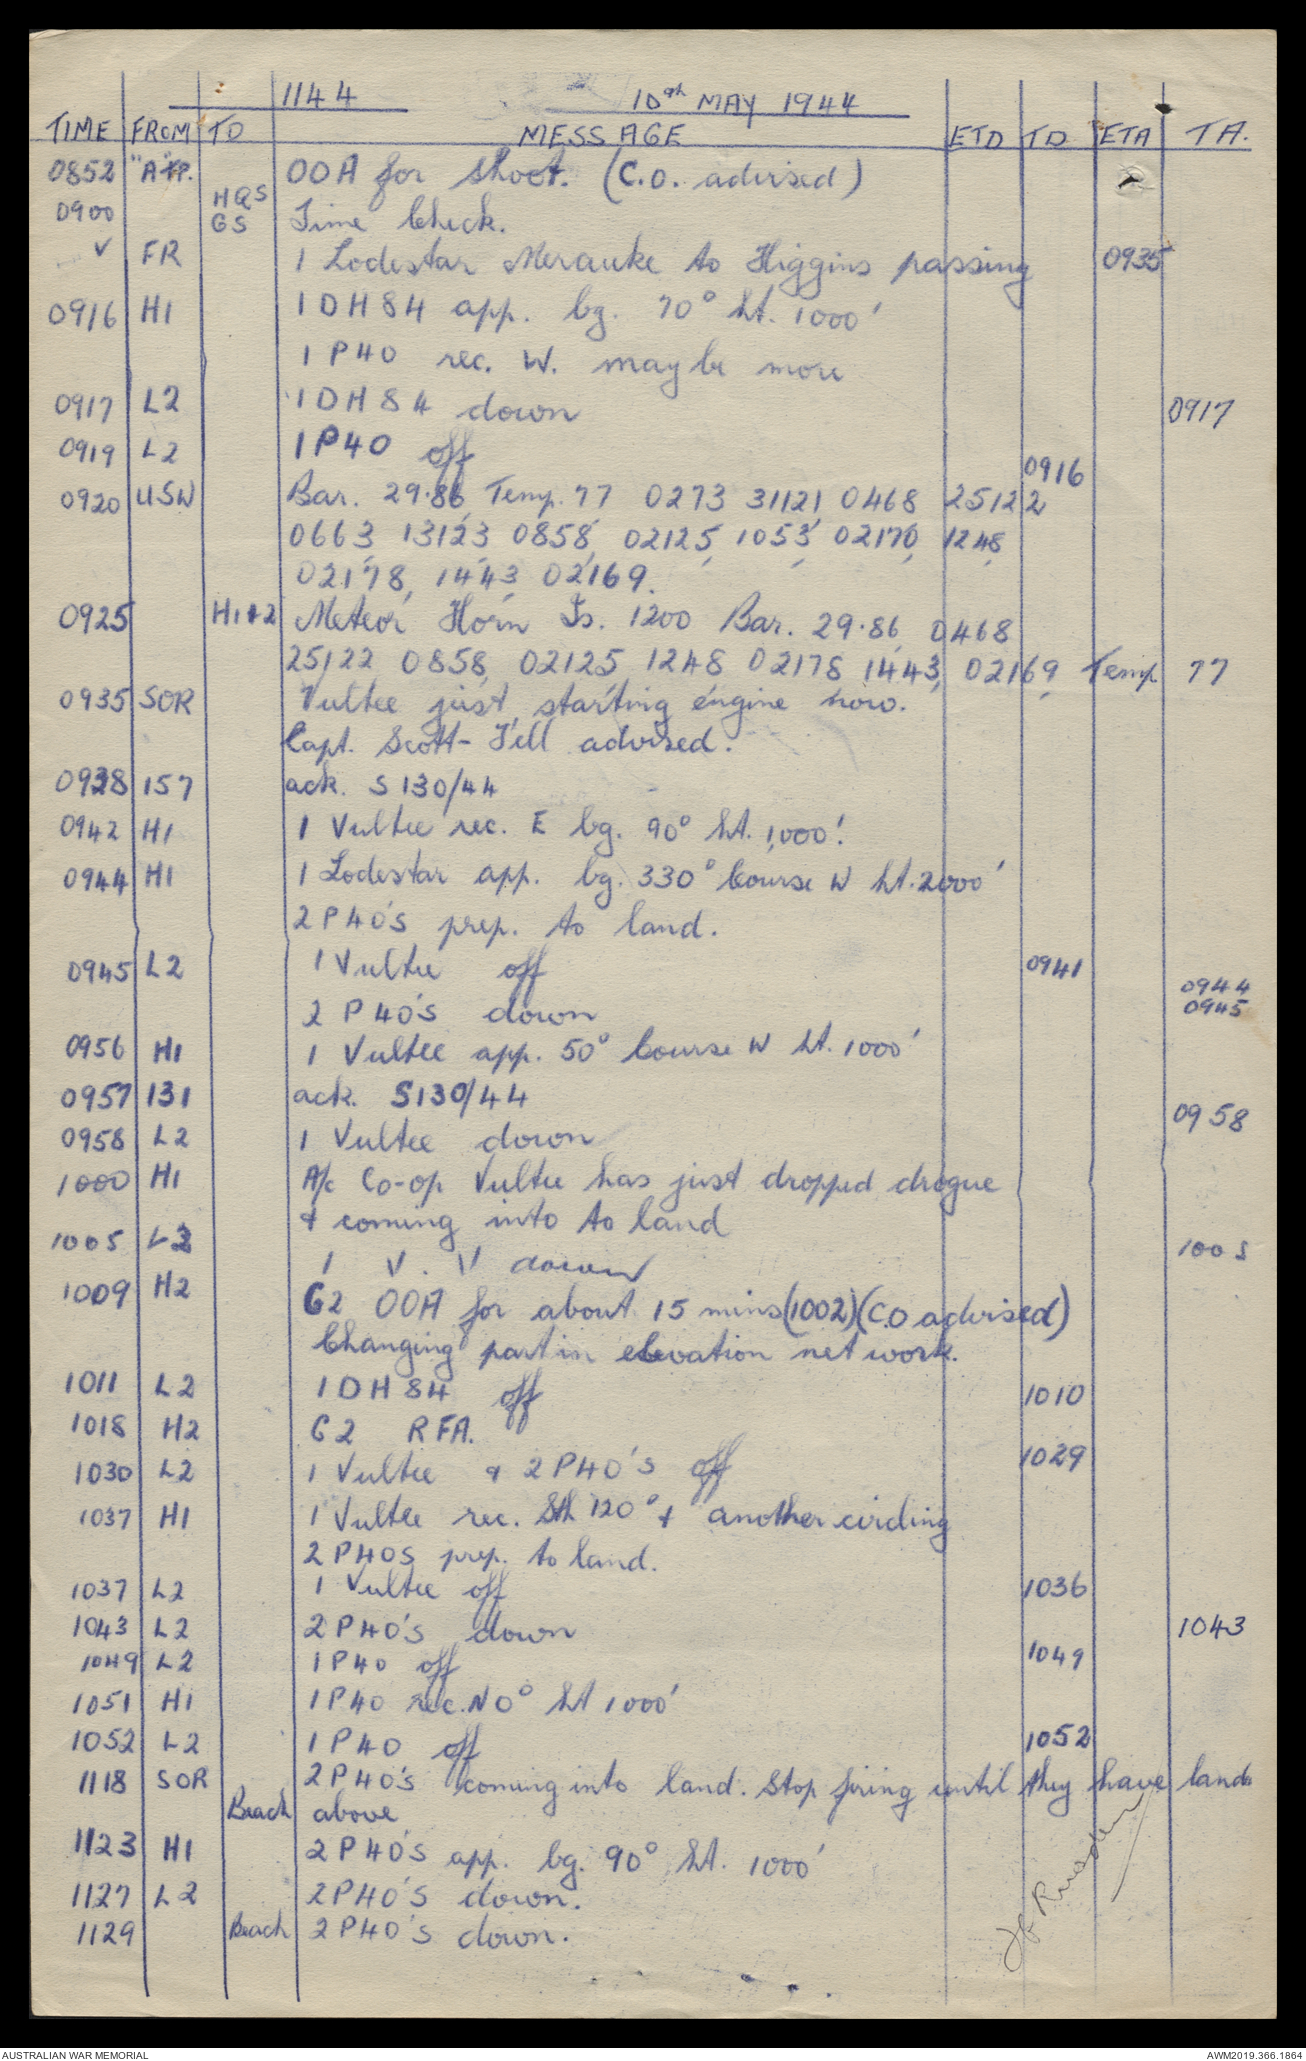 1144 10th MAY 1944
TIME FROM TO MESSAGE ETD TD ETA TA.
0852 OOA for shoot. (C.O. advised)
0900 HQS GS Time Check.
√ FR 1 Lodestar Merauke to Higgins passing 0935
0916 H1 1 DH84 app. bg. 70° ht. 1000'
1 P40 rec. W. may be more
0917 L2 1 DH84 down 0917
0919 L2 1 P40 off 0916
0920 USW Bar. 29.86, Temp. 77 0273 31121 0468 25122
0663 13123 0858, 02125, 1053 02170, 1248,
02178, 1443 02169.
0925 H1+2 Meteor Horn Is. 1200 Bar. 29.86, 0468
25122 0858, 02125 1248 02178 1443, 02169, Temp 77
0935 SOR Vultee just starting engine now.
Capt. Scott-Fell advised.
0938 157 ack. S130/44
0942 H1 1 Vultee rec. E bg. 90° ht. 1,000'.
0944 H1 1 Lodestar app. bg. 330° Course W ht. 2000'
2 P40's prep. to land.
0945 L2 1 Vultee off 0941
0944
2 P40's down 0945
0956 H1 1 Vultee app. 50° Course W ht. 1000'
0957 131 ack. S130/44
0958 L2 1 Vultee down 0958
1000 H1 A/c Co-op Vultee has just dropped drogue
+ coming into to land
1005 L2 1 V.V down 1005
1009 H2 G2 OOA for about 15 mins (1002) (C.O advised)
Changing part in elevation net work.
1011 L2 1 DH84 off 1010
1018 H2 G2 RFA.
1030 L2 1 Vultee & 2 P40's off 1029
1037 H1 1 Vultee rec. Sth 120° + another circling
2 P40s prep. to land.
1037 L2 1 Vultee off 1036
1043 L2 2 P40's down 1043
1049 L2 1 P40 off 1049
1051 H1 1 P40 rec. N 0° ht 1000'
1052 L2 1 P40 off 1052
1118 SOR 2 P40's coming into land. Stop firing until they have land
Beach above
1123 H1 2 P40's app. bg. 90° ht. 1000'
1127 L2 2 P40's down.
1129 Beach 2 P40's down.
AUSTRALIAN WAR MEMORIAL AWM2019.366.1864